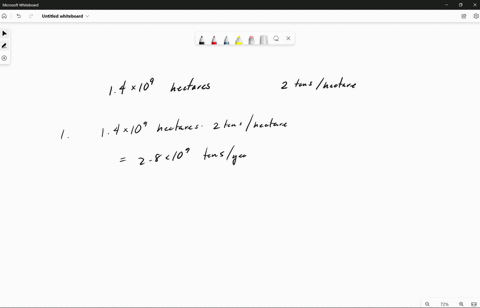 Microsoft Whiteboard
Untitled whiteboard
1.4 × 10⁹ hectares 2 tons/hectare
1. 1.4 × 10⁹ hectares · 2 tons/hectare
= 2.8 × 10⁹ tons/yea
72%